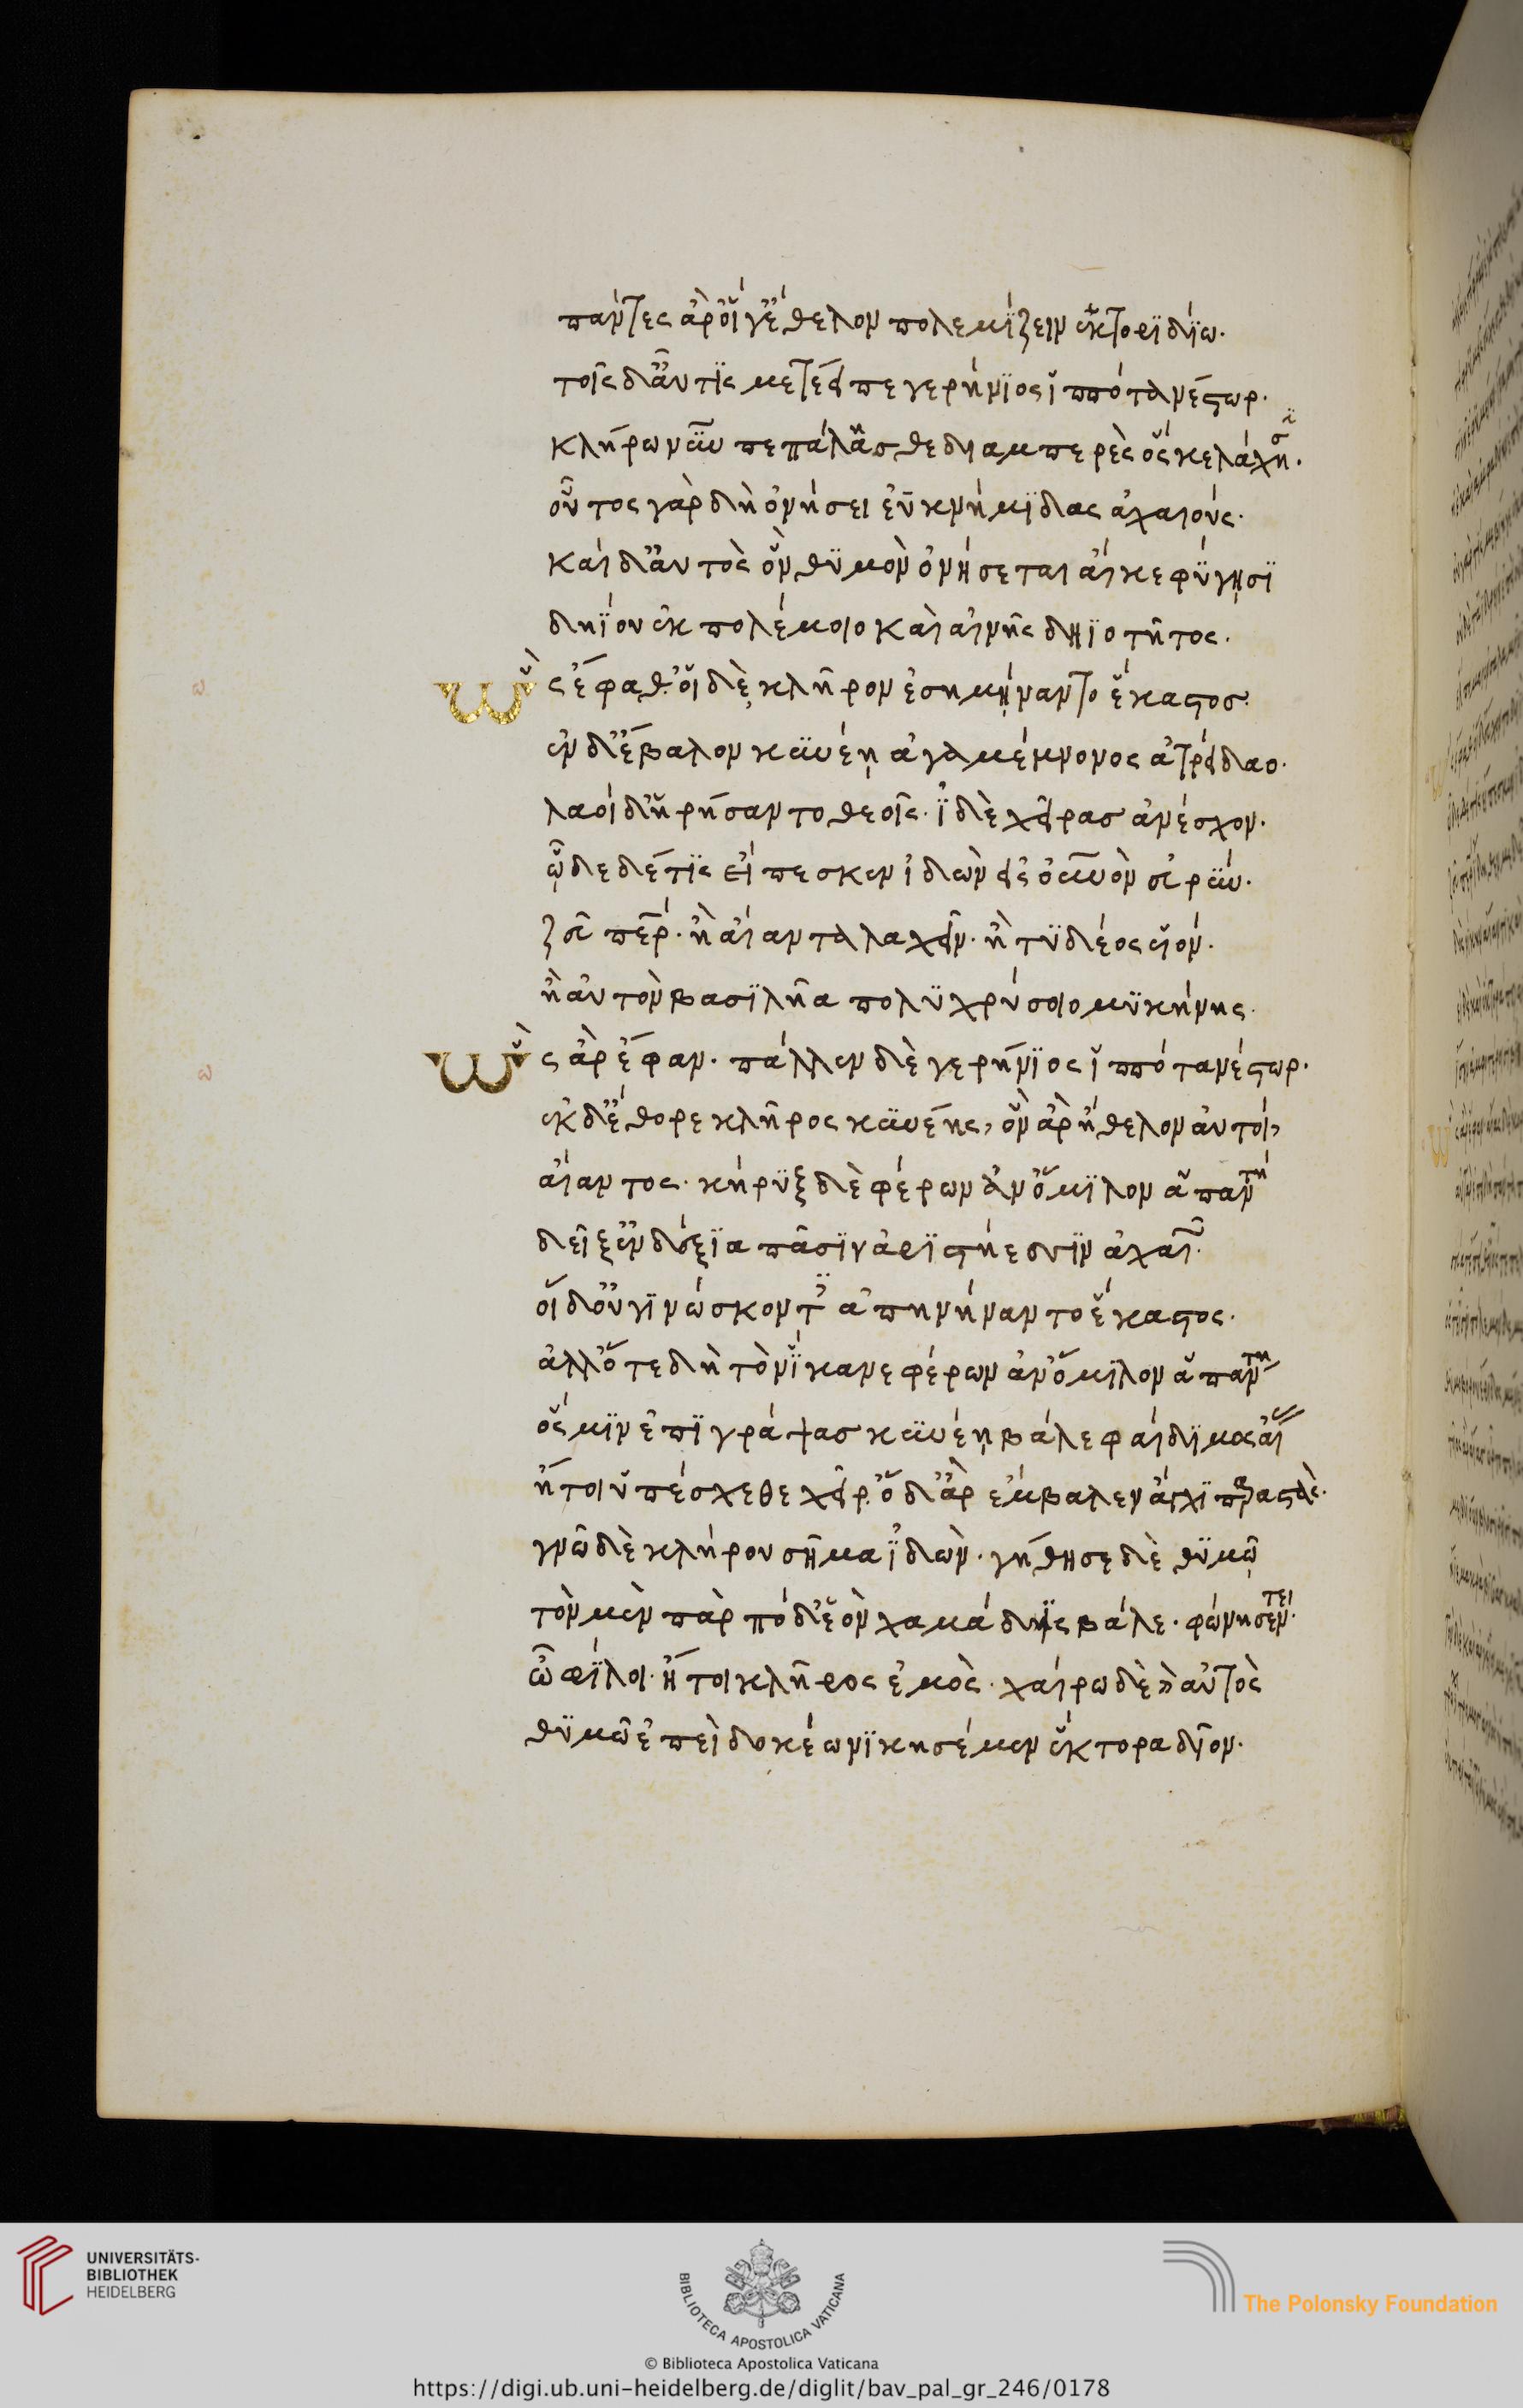 πάντες ἀρ οἵ γ ἔθελον πολεμίζειν ἕκτορι δίω.
τοῖς δ αὖτις μετέειπε γερήνιος ἱππότα νέστωρ.
κλήρω νῦν πεπάλασθε διαμπερὲς ὅς κε λάχησι.
οὗτος γὰρ δὴ ὀνήσει ἐϋκνήμιδας ἀχαιούς.
καὶ δ αὐτὸς ὃν θυμὸν ὀνήσεται αἴ κε φύγησι
δηΐου ἐκ πολέμοιο καὶ αἰνῆς δηϊοτῆτος.
Ὣς ἔφαθ. οἱ δὲ κλῆρον ἐσημήναντο ἕκαστος.
ἐν δ ἔβαλον κυνέῃ ἀγαμέμνονος ἀτρείδαο.
λαοὶ δ ἠρήσαντο θεοῖς. ἰδὲ χεῖρας ἀνέσχον.
ὧδε δέ τις εἴπεσκεν ἰδὼν εἰς οὐρανὸν εὐρύν.
ζεῦ πάτερ. ἢ αἴαντα λαχεῖν. ἢ τυδέος υἱόν.
ἢ αὐτὸν βασιλῆα πολυχρύσοιο μυκήνης.
Ὣς ἀρ ἔφαν. πάλλεν δὲ γερήνιος ἱππότα νέστωρ.
ἐκ δ ἔθορε κλῆρος κυνέης, ὃν ἀρ ἤθελον αὐτοί,
αἴαντος. κήρυξ δὲ φέρων ἀν ὅμιλον ἁπάντη
δεῖξ ἐνδέξια πᾶσιν ἀριστήεσσιν ἀχαιῶν.
οἱ δ οὐ γινώσκοντ ἀπηνήναντο ἕκαστος.
ἀλλ ὅτε δὴ τὸν ἵκανε φέρων ἀν ὅμιλον ἁπάντη
ὅς μιν ἐπιγράψας κυνέῃ βάλε φαίδιμος αἴας
ἤτοι ὑπέσχεθε χεῖρ. ὁ δ ἀρ ἔμβαλεν ἄγχι παραστάς.
γνῶ δὲ κλήρου σῆμα ἰδὼν. γήθησε δὲ θυμῷ
τὸν μὲν πὰρ πόδ ἑὸν χαμάδις βάλε. φώνησέν τε.
ὦ φίλοι. ἤτοι κλῆρος ἐμὸς. χαίρω δὲ καὶ αὐτὸς
θυμῷ ἐπεὶ δοκέω νικησέμεν ἕκτορα δῖον.
ω
ω
UNIVERSITÄTS-
BIBLIOTHEK
HEIDELBERG
BIBLIOTECA APOSTOLICA VATICANA
The Polonsky Foundation
© Biblioteca Apostolica Vaticana
https://digi.ub.uni-heidelberg.de/diglit/bav_pal_gr_246/0178